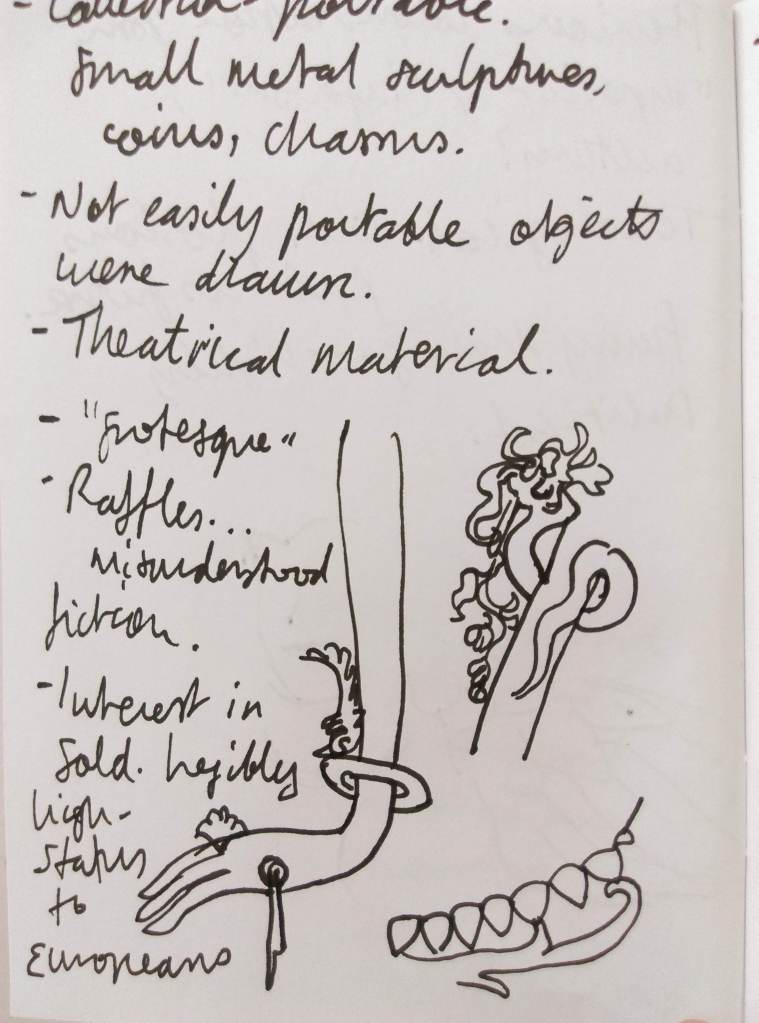 - Collection portable.
small metal sculptures,
coins, charms.
- Not easily portable objects
were drawn.
- Theatrical material.
- "grotesque"
- Raffles...
misunderstood
fiction.
- Interest in
gold. legibly
high-
status
to
Europeans